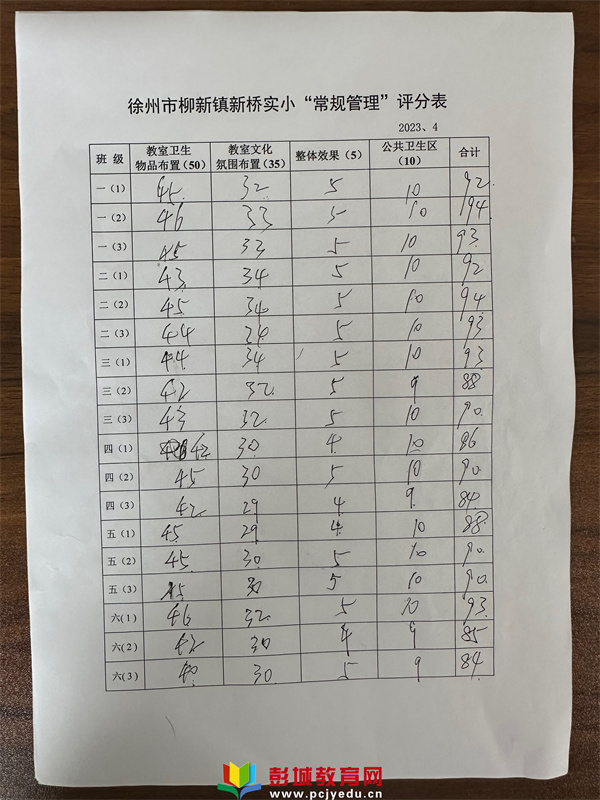 徐州市柳新镇新桥实小“常规管理”评分表
2023、4
班 级 教室卫生物品布置(50) 教室文化氛围布置(35) 整体效果(5) 公共卫生区(10) 合计
一(1) 45 32 5 10 92
一(2) 46 33 5 10 194
一(3) 45 33 5 10 93
二(1) 43 34 5 10 92
二(2) 45 34 5 10 94
二(3) 44 24 5 10 93
三(1) 44 34 5 10 93
三(2) 42 32 5 9 88
三(3) 43 32 5 10 90
四(1) 42 30 4 10 86
四(2) 45 30 5 10 90
四(3) 42 29 4 9 84
五(1) 45 29 4 10 88
五(2) 45 30 5 10 90
五(3) 45 30 5 10 90
六(1) 46 32 5 10 93
六(2) 42 30 4 9 85
六(3) 40 30 5 9 84
彭城教育网
www.pcjyedu.cn